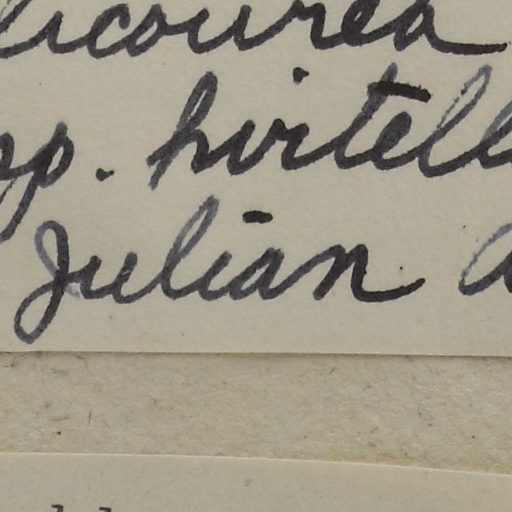 licourea
sp. hirtell
Julian a